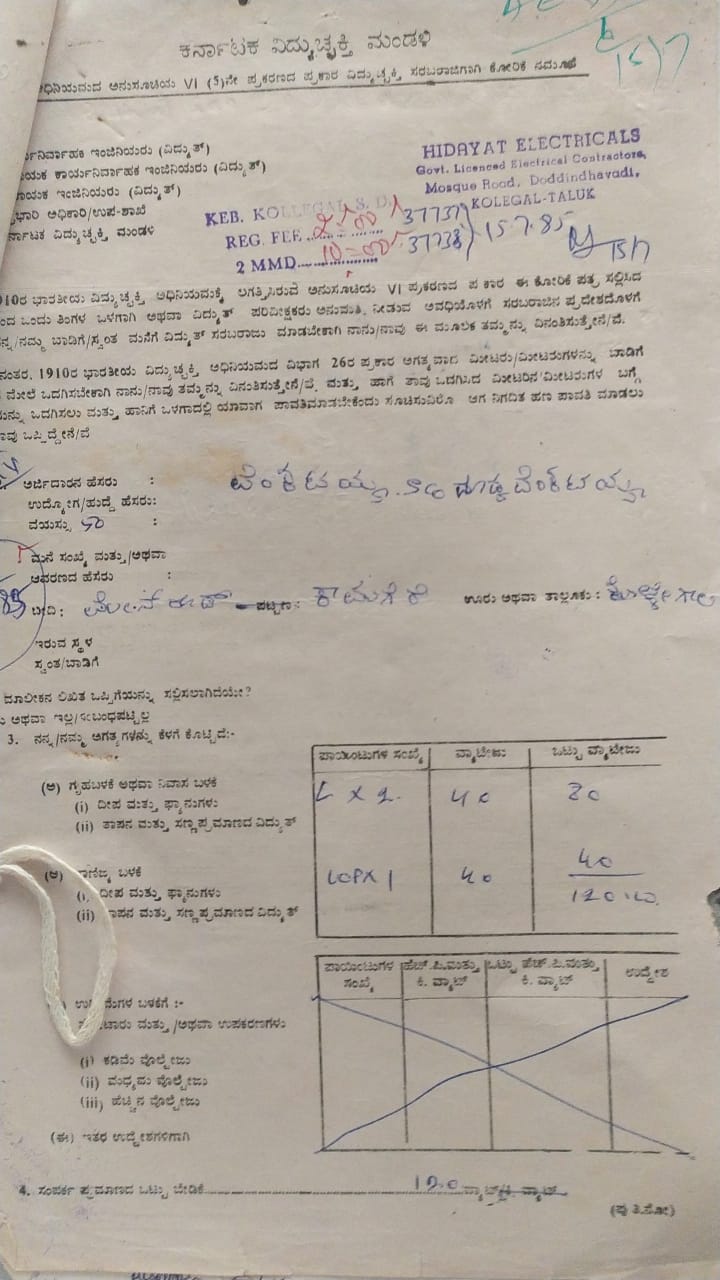 ಕರ್ನಾಟಕ ವಿದ್ಯುಚ್ಛಕ್ತಿ ಮಂಡಳಿ
ಅನುಸೂಚಿಯ VI (5)ನೇ ಪ್ರಕರಣದ ಪ್ರಕಾರ ವಿದ್ಯುಚ್ಛಕ್ತಿ ಸರಬರಾಜಿಗಾಗಿ ಕೋರಿಕೆ ನಮೂನೆ
ಇಂಜಿನಿಯರು (ವಿದ್ಯುತ್)
ಕಾರ್ಯನಿರ್ವಾಹಕ ಇಂಜಿನಿಯರು (ವಿದ್ಯುತ್)
ಇಂಜಿನಿಯರು (ವಿದ್ಯುತ್)
ಅಧಿಕಾರಿ/ಉಪ-ಶಾಖೆ
ವಿದ್ಯುಚ್ಛಕ್ತಿ ಮಂಡಳಿ
HIDAYAT ELECTRICALS
Govt. Licenced Electrical Contractors,
Mosque Road, Doddindhavadi,
KOLEGAL-TALUK
KEB. KOLLEGAL S. D.
REG. FEE 37737
2 MMD 37738 15.7.85
ಭಾರತೀಯ ವಿದ್ಯುಚ್ಛಕ್ತಿ ಅಧಿನಿಯಮಕ್ಕೆ ಲಗತ್ತಿಸಿರುವ ಅನುಸೂಚಿಯ VI ಪ್ರಕರಣದ ಪ್ರಕಾರ ಈ ಕೋರಿಕೆ ಪತ್ರ ಸಲ್ಲಿಸಿದ
ಒಂದು ತಿಂಗಳ ಒಳಗಾಗಿ ಅಥವಾ ವಿದ್ಯುತ್ ಪರಿವೀಕ್ಷಕರು ಅನುಮತಿ ನೀಡುವ ಅವಧಿಯೊಳಗೆ ಸರಬರಾಜಿನ ಪ್ರದೇಶದೊಳಗೆ
ನನ್ನ/ನಮ್ಮ ಬಾಡಿಗೆ/ಸ್ವಂತ ಮನೆಗೆ ವಿದ್ಯುತ್ ಸರಬರಾಜು ಮಾಡಬೇಕಾಗಿ ನಾನು/ನಾವು ಈ ಮೂಲಕ ತಮ್ಮನ್ನು ವಿನಂತಿಸುತ್ತೇನೆ/ವೆ.
ನಂತರ, 1910ರ ಭಾರತೀಯ ವಿದ್ಯುಚ್ಛಕ್ತಿ ಅಧಿನಿಯಮದ ವಿಭಾಗ 26ರ ಪ್ರಕಾರ ಅಗತ್ಯವಾದ ಮೀಟರು/ಮೀಟರುಗಳನ್ನು ಬಾಡಿಗೆ
ಮೇಲೆ ಒದಗಿಸಬೇಕಾಗಿ ನಾನು/ನಾವು ತಮ್ಮನ್ನು ವಿನಂತಿಸುತ್ತೇನೆ/ವೆ, ಮತ್ತು ಹಾಗೆ ತಾವು ಒದಗಿಸಿದ ಮೀಟರಿನ/ಮೀಟರುಗಳ ಬಗ್ಗೆ
ಒದಗಿಸಲು ಮತ್ತು ಹಾನಿಗೆ ಒಳಗಾದಲ್ಲಿ ಯಾವಾಗ ಪಾವತಿಮಾಡಬೇಕೆಂದು ಸೂಚಿಸುವಿರೊ ಆಗ ನಿಗದಿತ ಹಣ ಪಾವತಿ ಮಾಡಲು
ಒಪ್ಪಿದ್ದೇನೆ/ವೆ
ಅರ್ಜಿದಾರನ ಹೆಸರು : ವೆಂಕಟಯ್ಯ S/o ದೊಡ್ಡ ವೆಂಕಟಯ್ಯ
ಉದ್ಯೋಗ/ಹುದ್ದೆ ಹೆಸರು:
ವಯಸ್ಸು 50 :
ಮನೆ ಸಂಖ್ಯೆ ಮತ್ತು/ಅಥವಾ
ಆವರಣದ ಹೆಸರು :
ಬೀದಿ: ಮೇನ್ ರೋಡ್ ಪಟ್ಟಣ: ಕಾಮಗೆರೆ ಊರು ಅಥವಾ ತಾಲ್ಲೂಕು: ಕೊಳ್ಳೇಗಾಲ
ಇರುವ ಸ್ಥಳ
ಸ್ವಂತ/ಬಾಡಿಗೆ
ಮಾಲೀಕನ ಲಿಖಿತ ಒಪ್ಪಿಗೆಯನ್ನು ಸಲ್ಲಿಸಲಾಗಿದೆಯೇ?
ಅಥವಾ ಇಲ್ಲ/ಸಂಬಂಧಪಟ್ಟಿಲ್ಲ
3. ನನ್ನ/ನಮ್ಮ ಅಗತ್ಯಗಳನ್ನು ಕೆಳಗೆ ಕೊಟ್ಟಿದೆ:-
ಪಾಯಿಂಟುಗಳ ಸಂಖ್ಯೆ ವ್ಯಾಟೇಜು ಒಟ್ಟು ವ್ಯಾಟೇಜು
(ಅ) ಗೃಹಬಳಕೆ ಅಥವಾ ನಿವಾಸ ಬಳಕೆ
(i) ದೀಪ ಮತ್ತು ಫ್ಯಾನುಗಳು L X 2 40 80
(ii) ತಾಪನ ಮತ್ತು ಸಣ್ಣ ಪ್ರಮಾಣದ ವಿದ್ಯುತ್
(ಆ) ವಾಣಿಜ್ಯ ಬಳಕೆ
(i) ದೀಪ ಮತ್ತು ಫ್ಯಾನುಗಳು X 1 40 40
(ii) ತಾಪನ ಮತ್ತು ಸಣ್ಣ ಪ್ರಮಾಣದ ವಿದ್ಯುತ್ 120
ಪಾಯಿಂಟುಗಳ ಸಂಖ್ಯೆ ಹೆಚ್.ಪಿ.ಮತ್ತು ಕಿ. ವ್ಯಾಟ್ ಒಟ್ಟು ಹೆಚ್.ಪಿ.ಮತ್ತು ಕಿ. ವ್ಯಾಟ್ ಉದ್ದೇಶ
ಬಳಕೆಗೆ :-
ಮೋಟಾರು ಮತ್ತು/ಅಥವಾ ಉಪಕರಣಗಳು
(i) ಕಡಿಮೆ ವೋಲ್ಟೇಜು
(ii) ಮಧ್ಯಮ ವೋಲ್ಟೇಜು
(iii) ಹೆಚ್ಚಿನ ವೋಲ್ಟೇಜು
(ಈ) ಇತರ ಉದ್ದೇಶಗಳಿಗಾಗಿ
4. ಸಂಪರ್ಕ ಪ್ರಮಾಣದ ಒಟ್ಟು ಬೇಡಿಕೆ 120 ವ್ಯಾಟ್/ಕಿ. ವ್ಯಾಟ್
(ಪು.ತಿ.ನೋ)